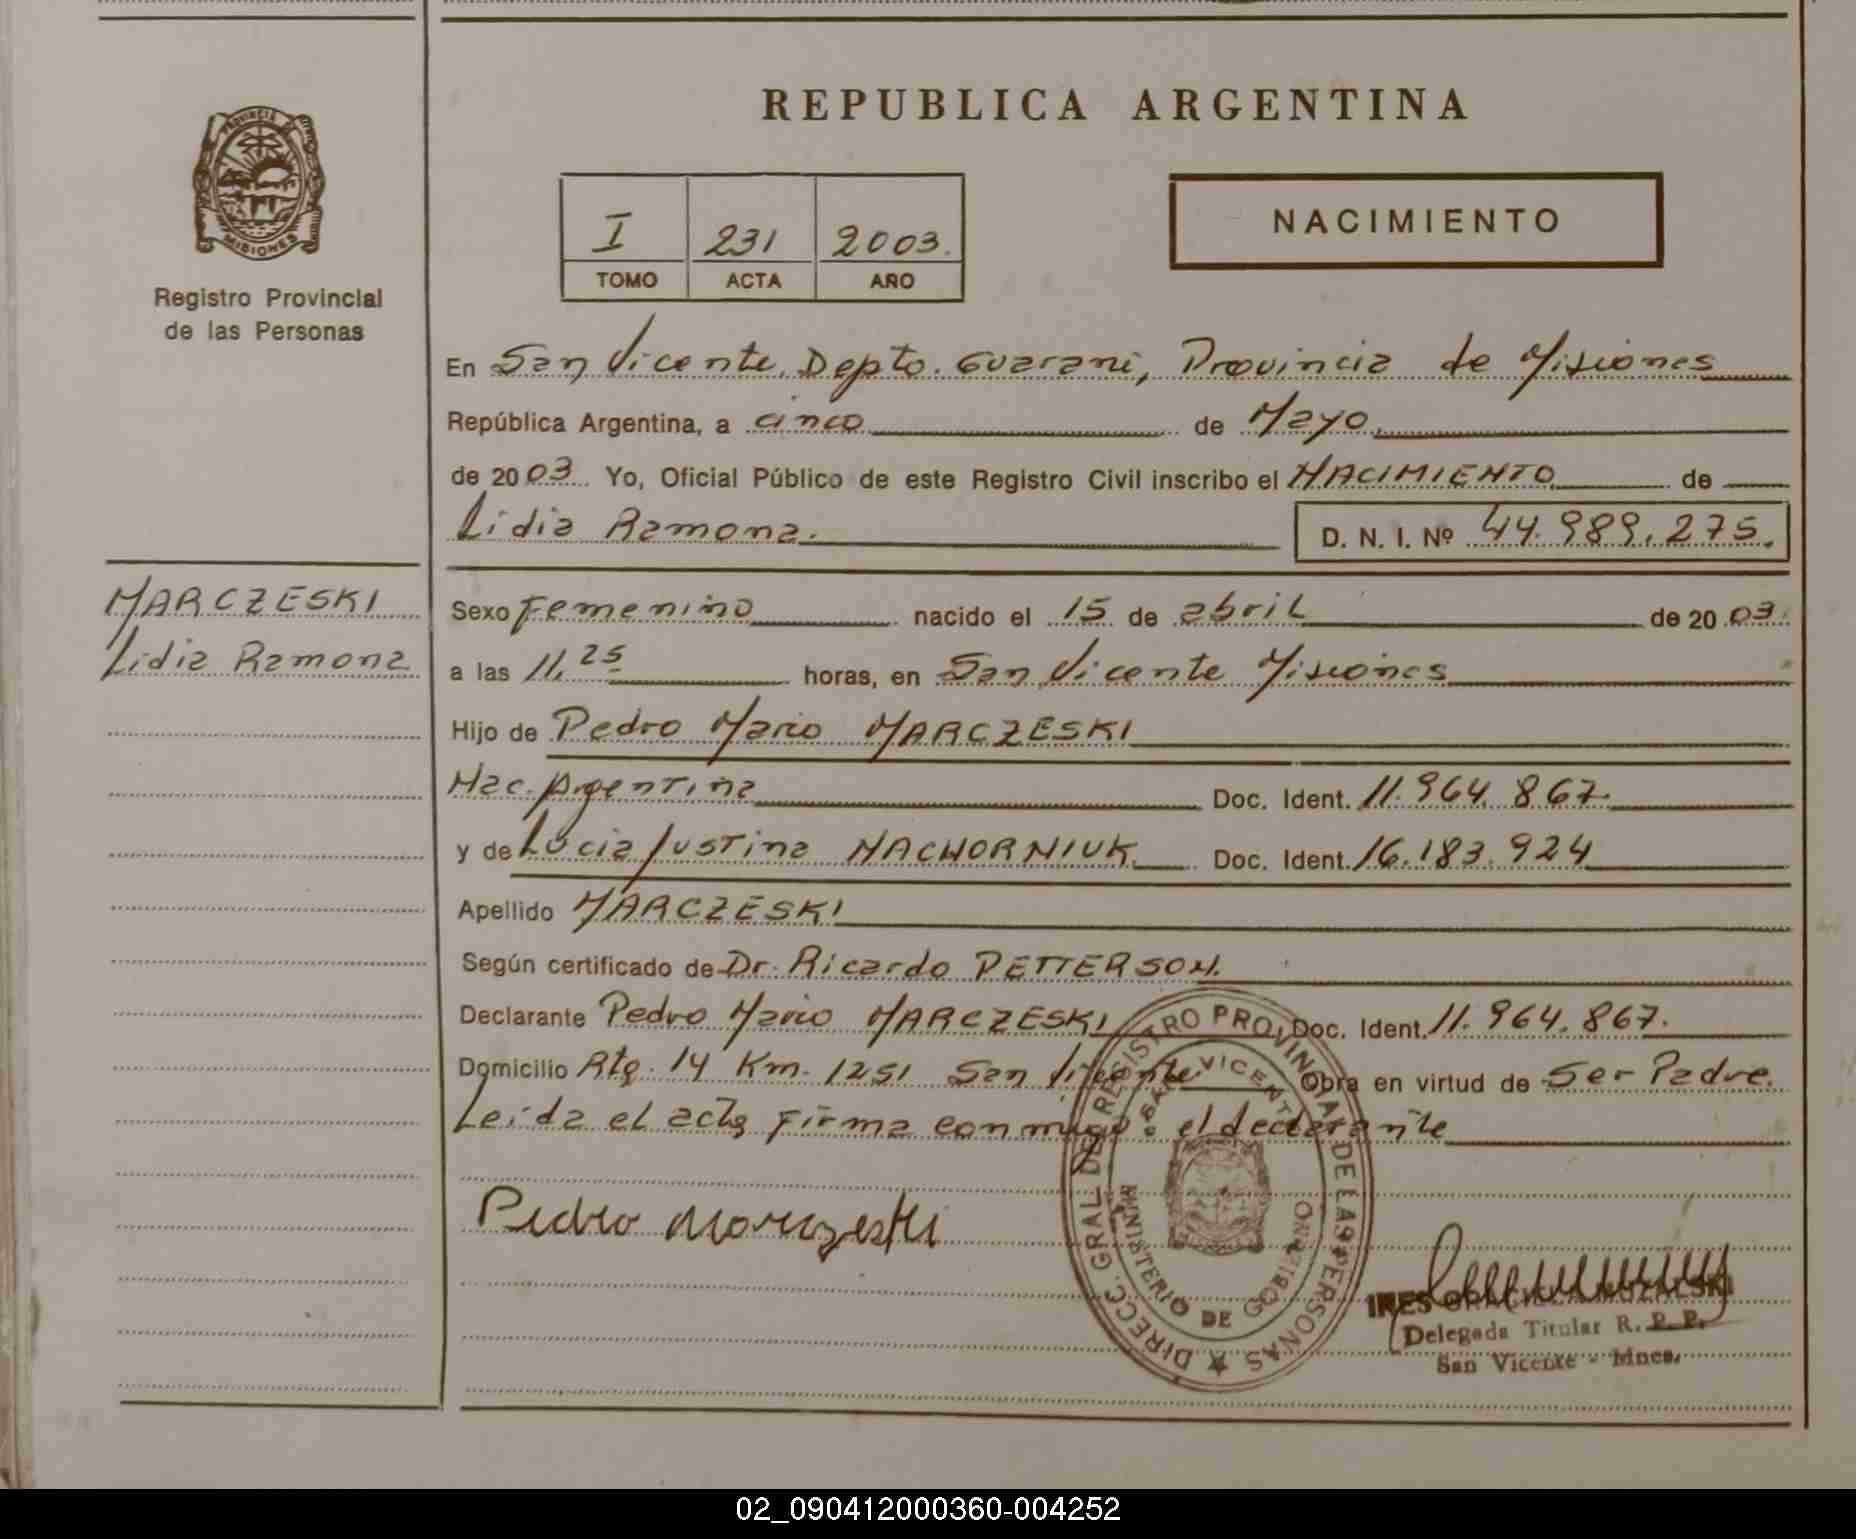 REPUBLICA ARGENTINA
PROVINCIA DE
MISIONES
Registro Provincial
de las Personas
I 231 2003.
TOMO ACTA AÑO
NACIMIENTO
En San Vicente, Depto. Guarani, Provincia de Misiones
República Argentina, a cinco de Mayo.
de 2003. Yo, Oficial Público de este Registro Civil inscribo el NACIMIENTO de
Lidia Ramona. D. N. I. Nº 44.989.275.
MARCZESKI
Lidia Ramona
Sexo Femenino nacido el 15 de abril de 2003.
a las 11,25 horas, en San Vicente Misiones
Hijo de Pedro Mario MARCZESKI
Nac. Argentina Doc. Ident. 11.964.867.
y de Lucia Justina NACHORNIUK Doc. Ident. 16.183.924
Apellido MARCZESKI
Según certificado de Dr. Ricardo PETTERSON.
Declarante Pedro Mario MARCZESKI Doc. Ident. 11.964.867.
Domicilio Rta. 14 Km. 1251 San Vicente Obra en virtud de Ser Padre.
Leida el acta firma conmigo: el declarante
Pedro Marczeski
DIRECC. GRAL. DEL REGISTRO PROVINCIAL DE LAS PERSONAS
SAN VICENTE
MINISTERIO DE GOBIERNO
INES GRACIELA
Delegada Titular R. P. P.
San Vicente - Mnes.
02_090412000360-004252